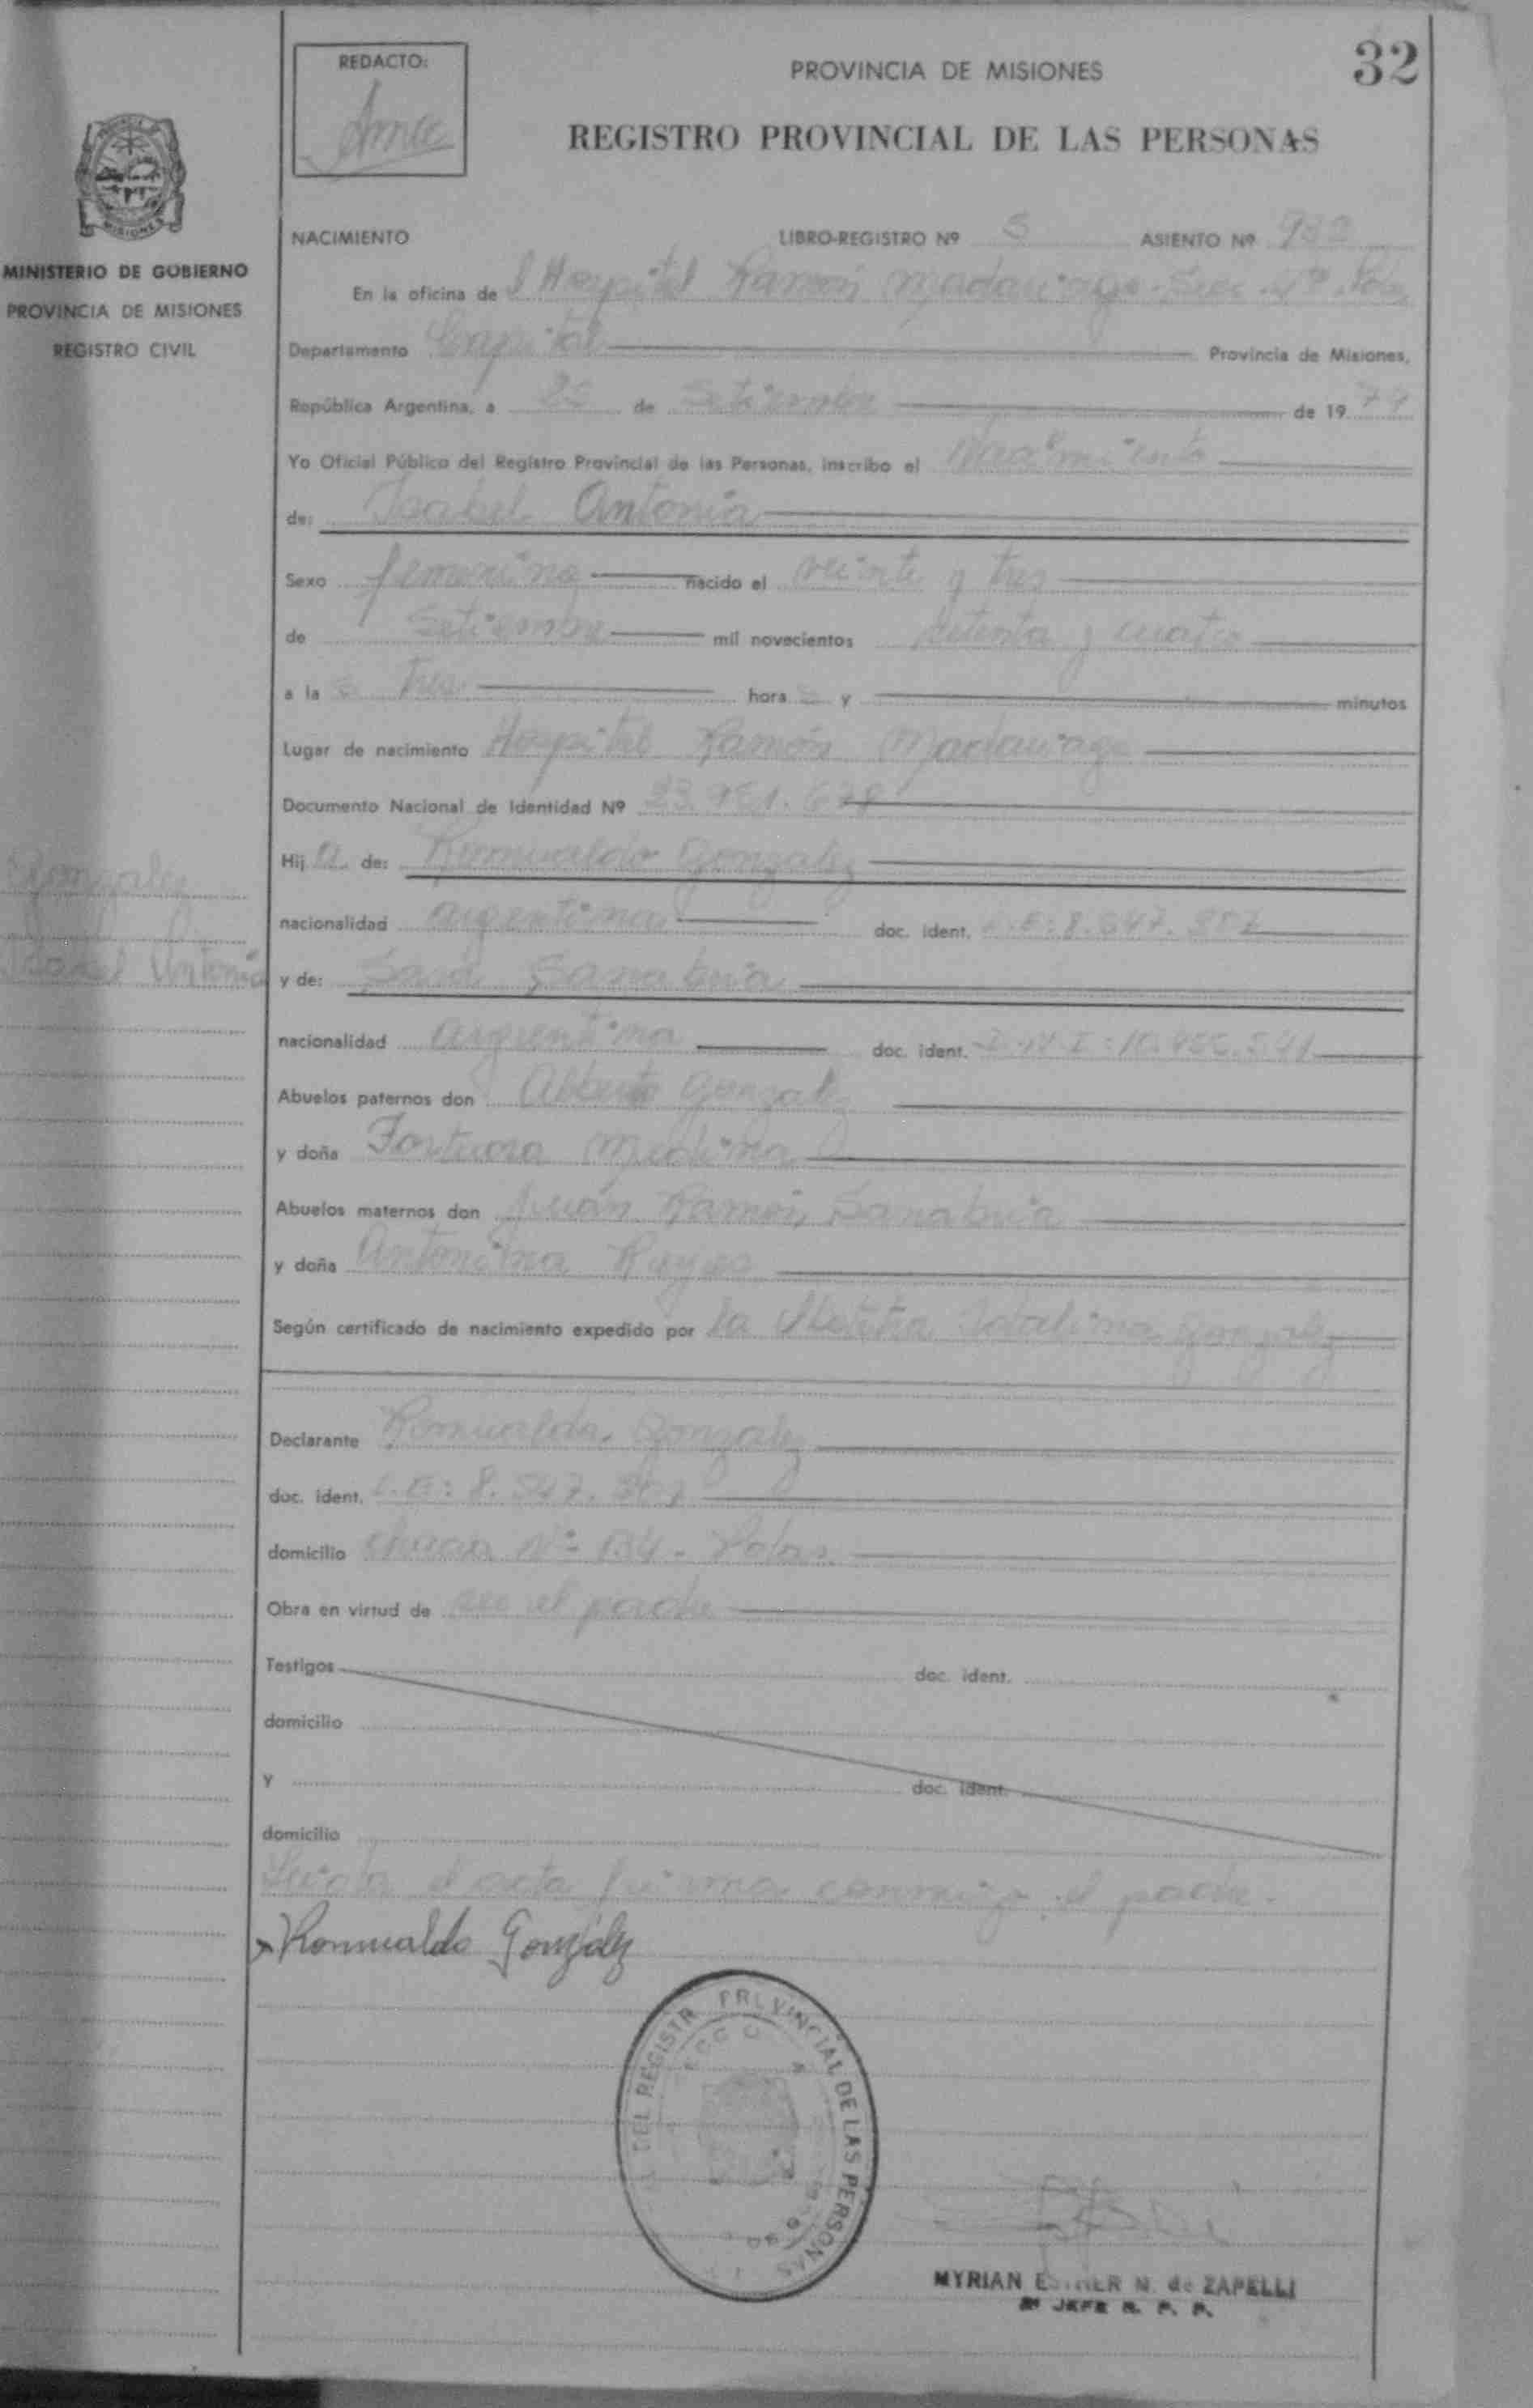 32
REDACTO:
PROVINCIA DE MISIONES
REGISTRO PROVINCIAL DE LAS PERSONAS
MISIONES
MINISTERIO DE GOBIERNO
PROVINCIA DE MISIONES
REGISTRO CIVIL
NACIMIENTO LIBRO-REGISTRO Nº 5 ASIENTO Nº
En la oficina de l Hospital Ramón Madariaga - Secc.
Departamento Capital Provincia de Misiones,
República Argentina, a de Setiembre de 19
Yo Oficial Público del Registro Provincial de las Personas, inscribo el Nacimiento
de: Isabel Antonia
Sexo femenino nacido el veinte y tres
de Setiembre mil novecientos setenta y cuatro
a la s tres hora s y minutos
Lugar de nacimiento Hospital Ramón Madariaga
Documento Nacional de Identidad Nº
Hij a de: Romualdo Gonzalez
Gonzalez
nacionalidad argentina doc. ident.
Isabel Antonia
y de: Sara Sanabria
nacionalidad argentina doc. ident. D.N.I:
Abuelos paternos don Alberto Gonzalez
y doña Fortuosa Medina
Abuelos maternos don Juan Ramón Sanabria
y doña Antonina Reyes
Según certificado de nacimiento expedido por la Catalina Gonzalez
Declarante Romualdo Gonzalez
doc. ident. L.E: 8.547.
domicilio chacra Nº 134 - Pdas.
Obra en virtud de ser el padre
Testigos doc. ident.
domicilio
y doc. ident.
domicilio
Leída el acta firma conmigo el padre.
Romualdo González
DEL REGISTR PROVINCIAL DE LAS PERSONAS
MYRIAN ESTHER N. de ZAPELLI
JEFE R. P. P.